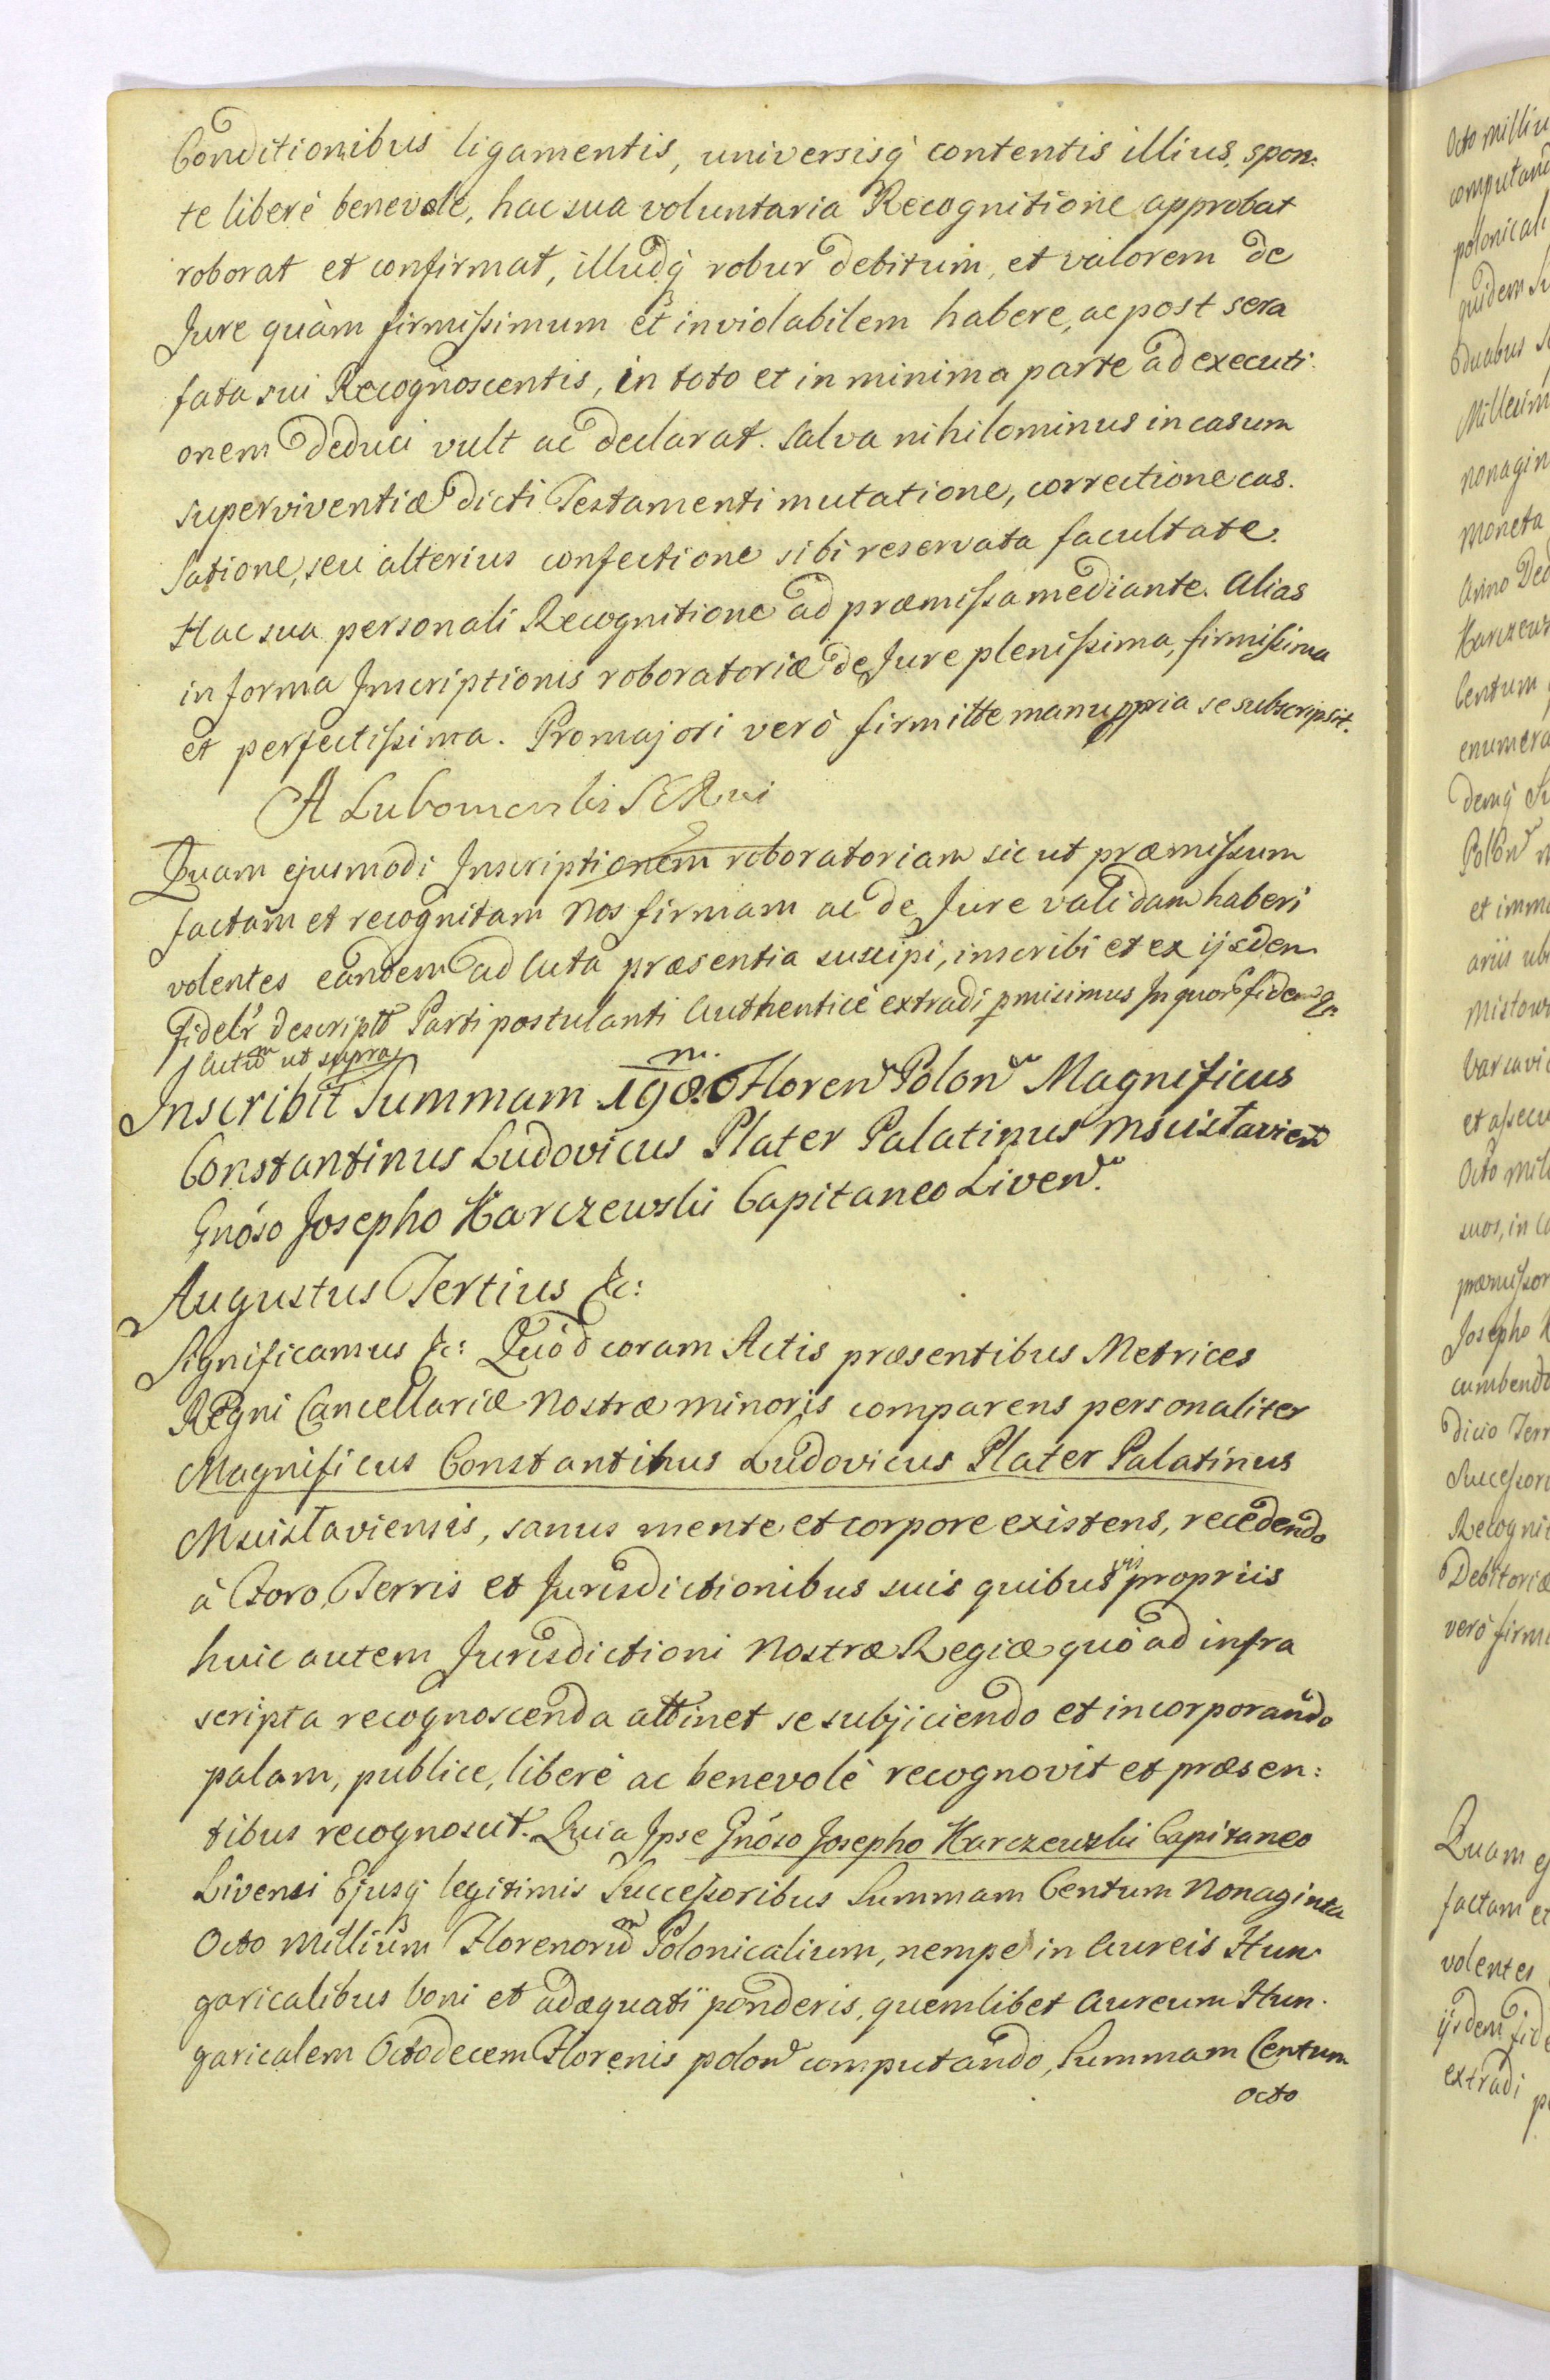 Conditionibus ligamentis, universisq contentis illius, spon:
te liberè benevole, hac sua voluntaria Recognitione approbat
roborat et confirmat, illudq robur debitum, et valorem de
Jure quàm firmissimum et inviolabilem habere, ac post sera
fata sui Recognoscentis, in toto et in minima parte ad executi:
onem deduci vult ac declarat. Salva nihilominus in casum
superviventiæ dicti Testamenti mutatione, correctione cas:
satione, seu alterius confectione sibi reservata facultate.
Hac sua personali Recognitione ad præmissa mediante. Alias
in forma Inscriptionis roboratoriæ de Jure plenissima, firmissima
et perfectissima. Pro majori verò firmitte manu ppria se subscripsit.
A Lubomerski
Quam ejusmodi Inscriptionem roboratoriam sic ut præmissum
factam et recognitam Nos firmam ac de Jure validam haberi
volentes eandem ad Acta præsentia suscipi, inscribi et ex ijsdem
fidelr descriptã Parti postulanti Authenticè extradi pmisimus In quor fidem &c
Actum ut supra
Inscribit Summam 198.000 m. Floren Polon Magnificus
Constantinus Ludovicus Plater Palatinus Mscislavien
Gnóso Josepho Karczewski Capitaneo Liven.
Augustus Tertius &c:
Significamus &c: Quòd coram Actis præsentibus Metrices
Regni Cancellariæ Nostræ minoris comparens personaliter
Magnificus Constantinus Ludovicus Plater Palatinus
Mscislaviensis, sanus mente et corpore existens, recedendo
à Foro, Terris et Jurisdictionibus suis quibusvis propriis
huic autem Jurisdictioni Nostræ Regiæ quò ad infra
scripta recognoscenda attinet se subjiciendo et incorporando
palam, publice, liberè ac benevolè recognovit et præsen:
tibus recognoscit. Quia Ipse Gnóso Josepho Karczewski Capitaneo
Livensi Ejusq legitimis Successoribus Summam Centum Nonaginta
Octo Millium Florenorum Polonicalium, nempe in Aureis Hun
garicalibus boni et adæquati ponderis, quemlibet Aureum Hun.
garicalem Octodecem Florenis polon computando, Summam Centum
Octo